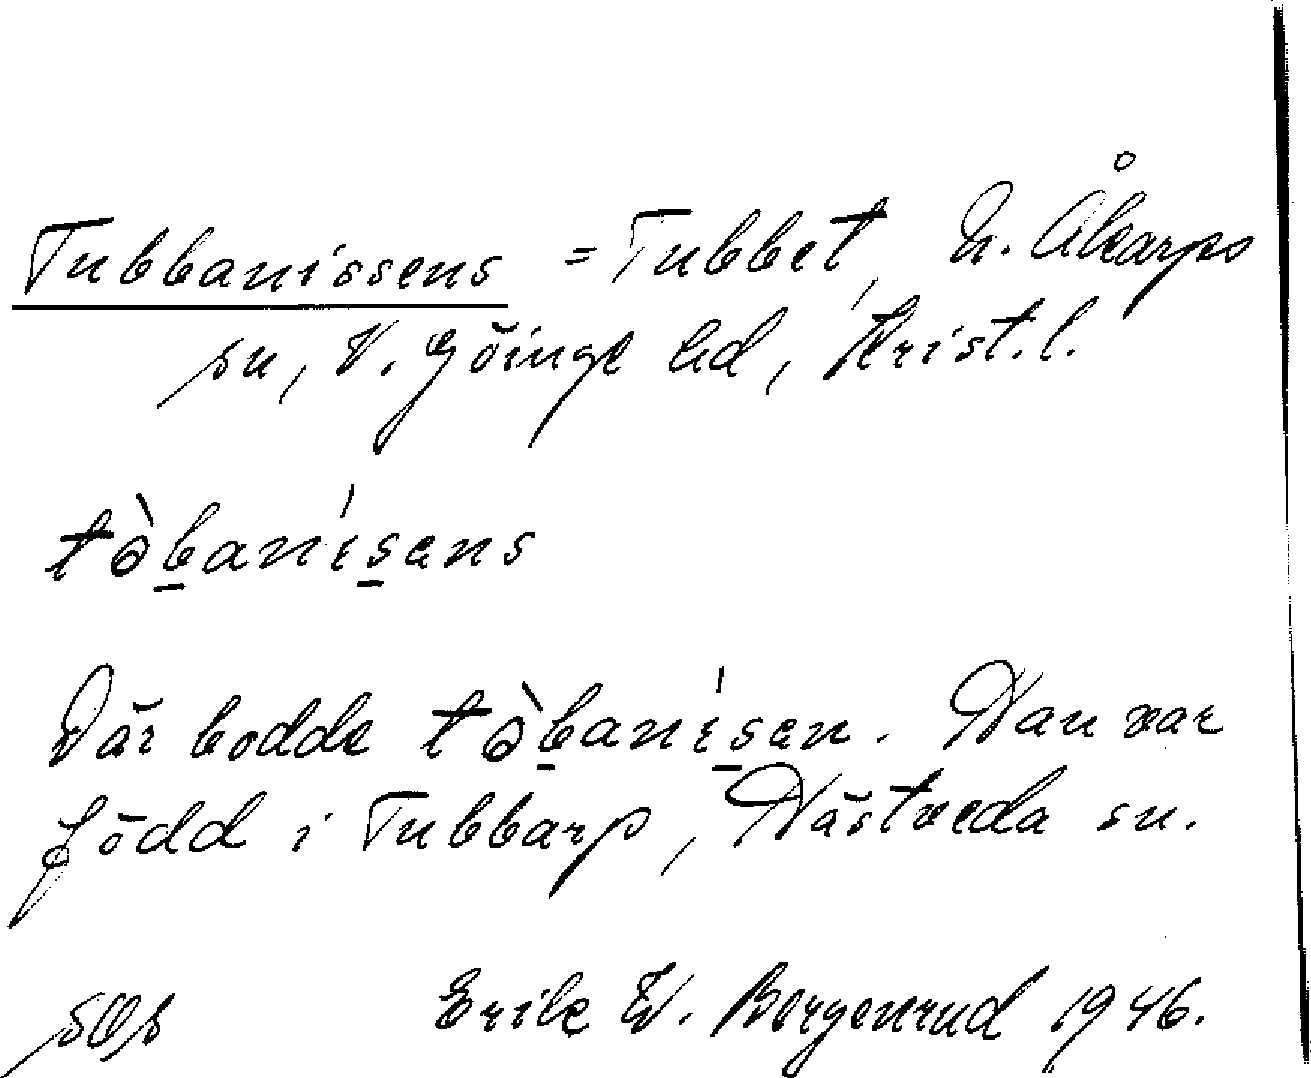 Tubbanissens = Tubbet, N. Åkarps
sn, V. Göinge hd, Krist.l.
tòbanísans
Där bodde tòbanísan. Han var
född i Tubbarp, Hästveda sn.
Erik W. Borgenrud 1946.